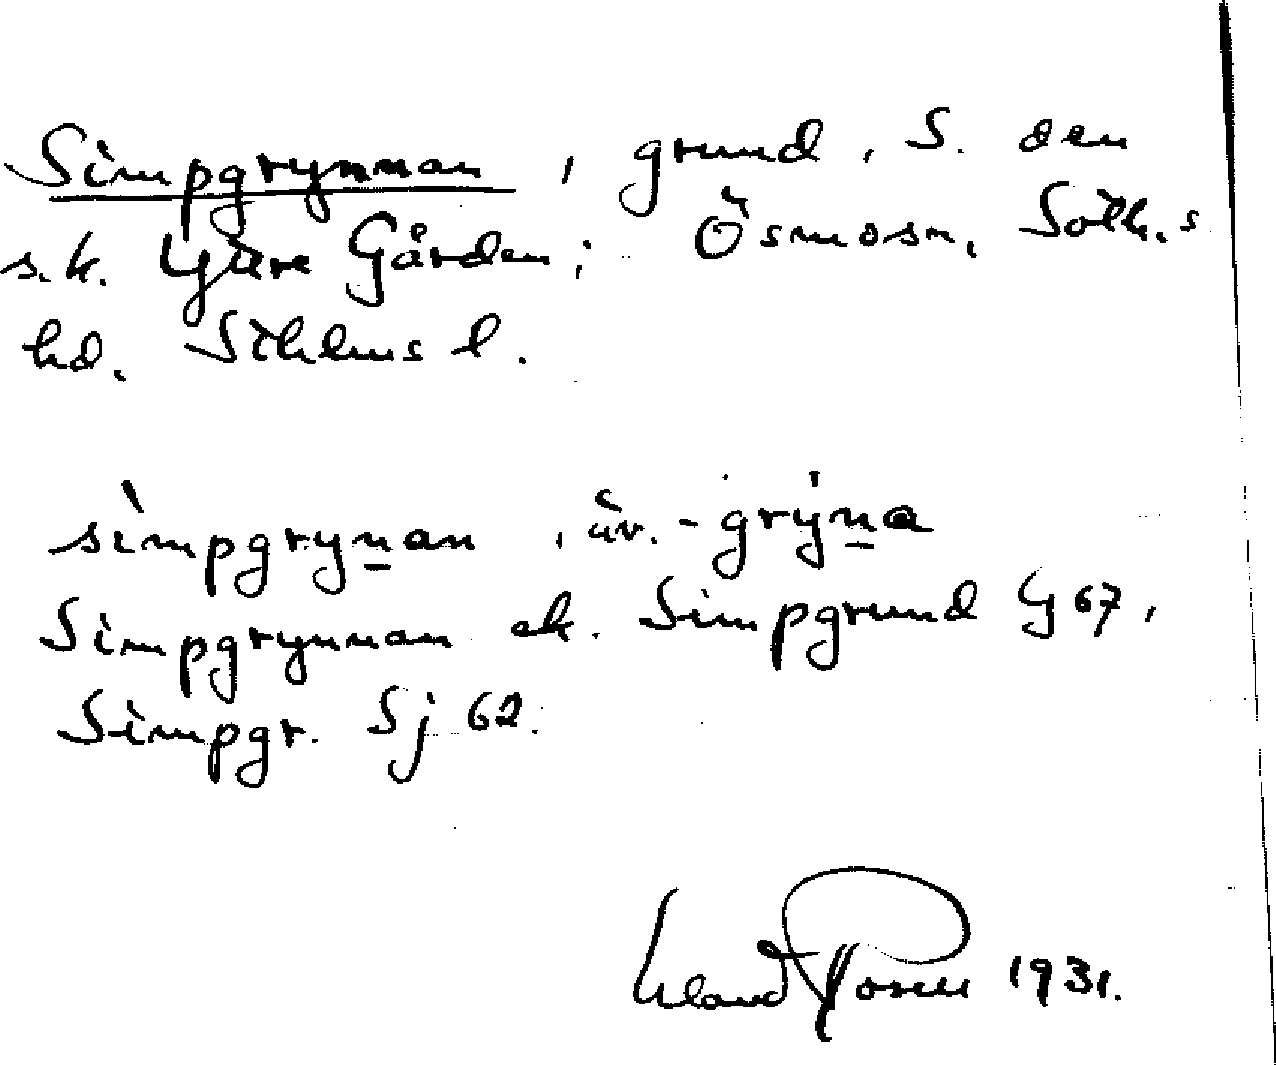 Simpgrynnan, grund, S. den
s.k. Yttre Gården; Ösmo sn, Soth.s
hd. Sthlms l.
simpgrynan, äv. -gryna
Simpgrynnan ek. Simpgrund G 67,
Simpgr. Sj 62.
1931.